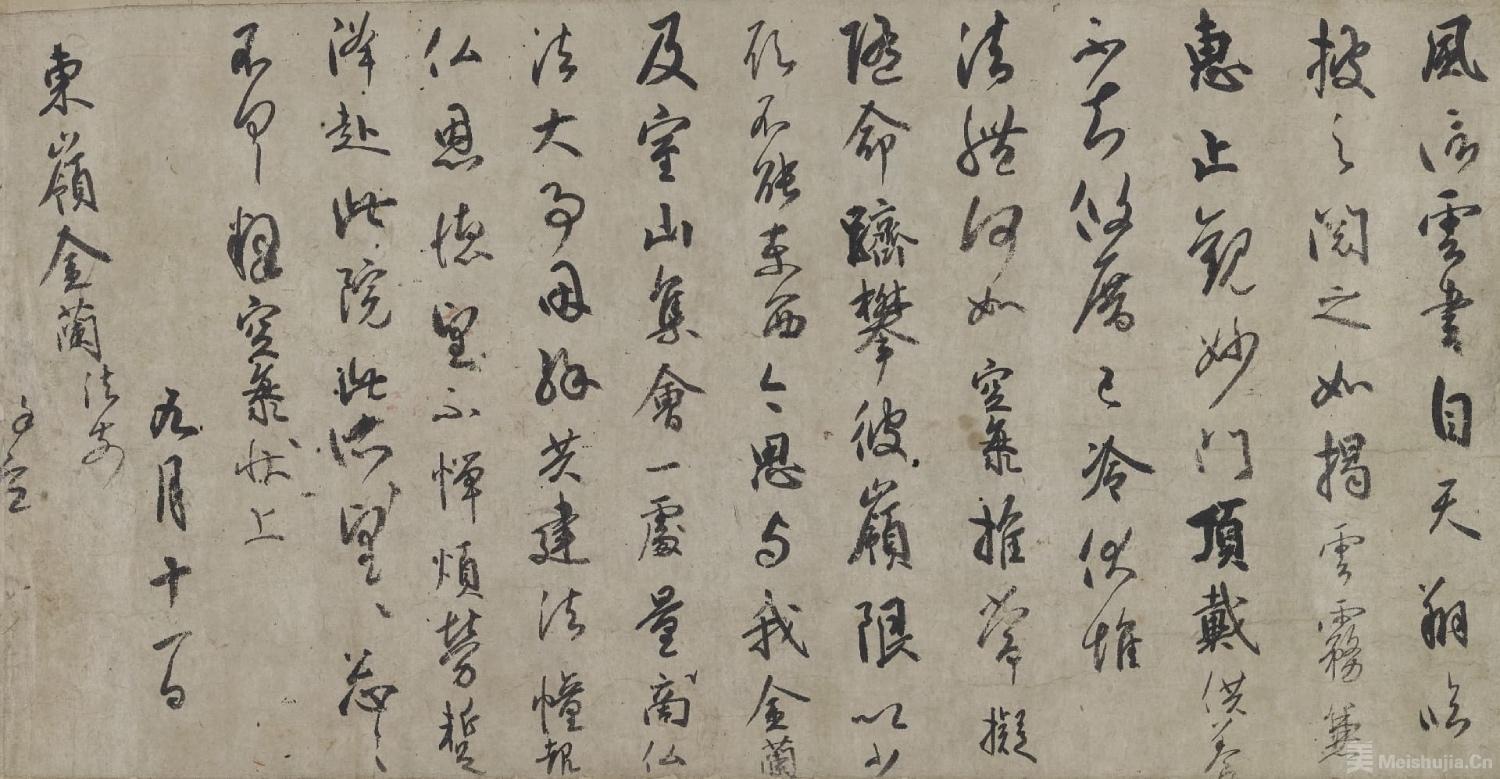 風信雲書自天翔臨
披之閱之如揭雲霧兼
惠止觀妙門頂戴供養
不知攸厝已冷伏惟
法體何如空海推常擬
隨命躋攀彼嶺限以少
願不能東西今思与我金蘭
及室山集會一處量商仏
法大事因緣共建法幢報
仏恩德望不憚煩勞蹔
降赴此院此所望々忩々
不具釋空海狀上
九月十一日
東嶺金蘭法前
謹空
Meishujia.Cn